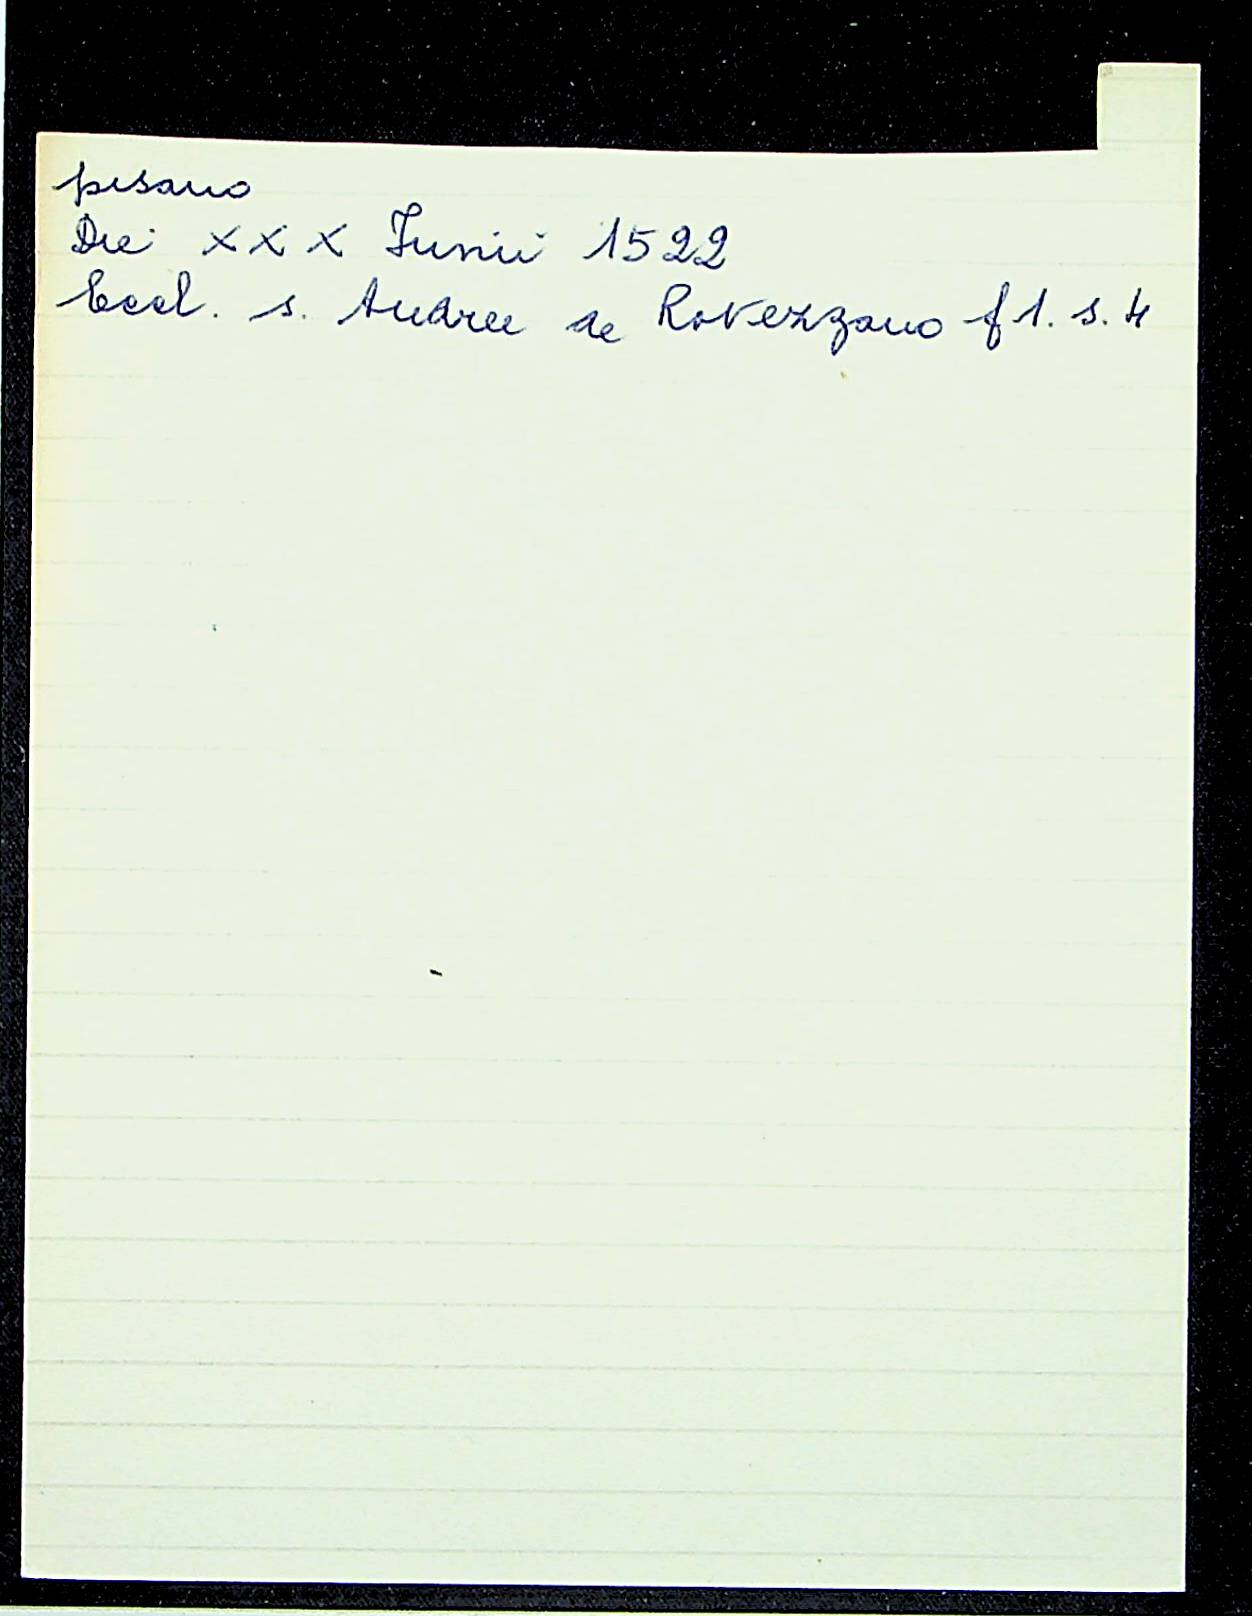 pisano
Die XXX Junii 1522
Eccl. s. Andree de Rovezzano f 1. s. 4